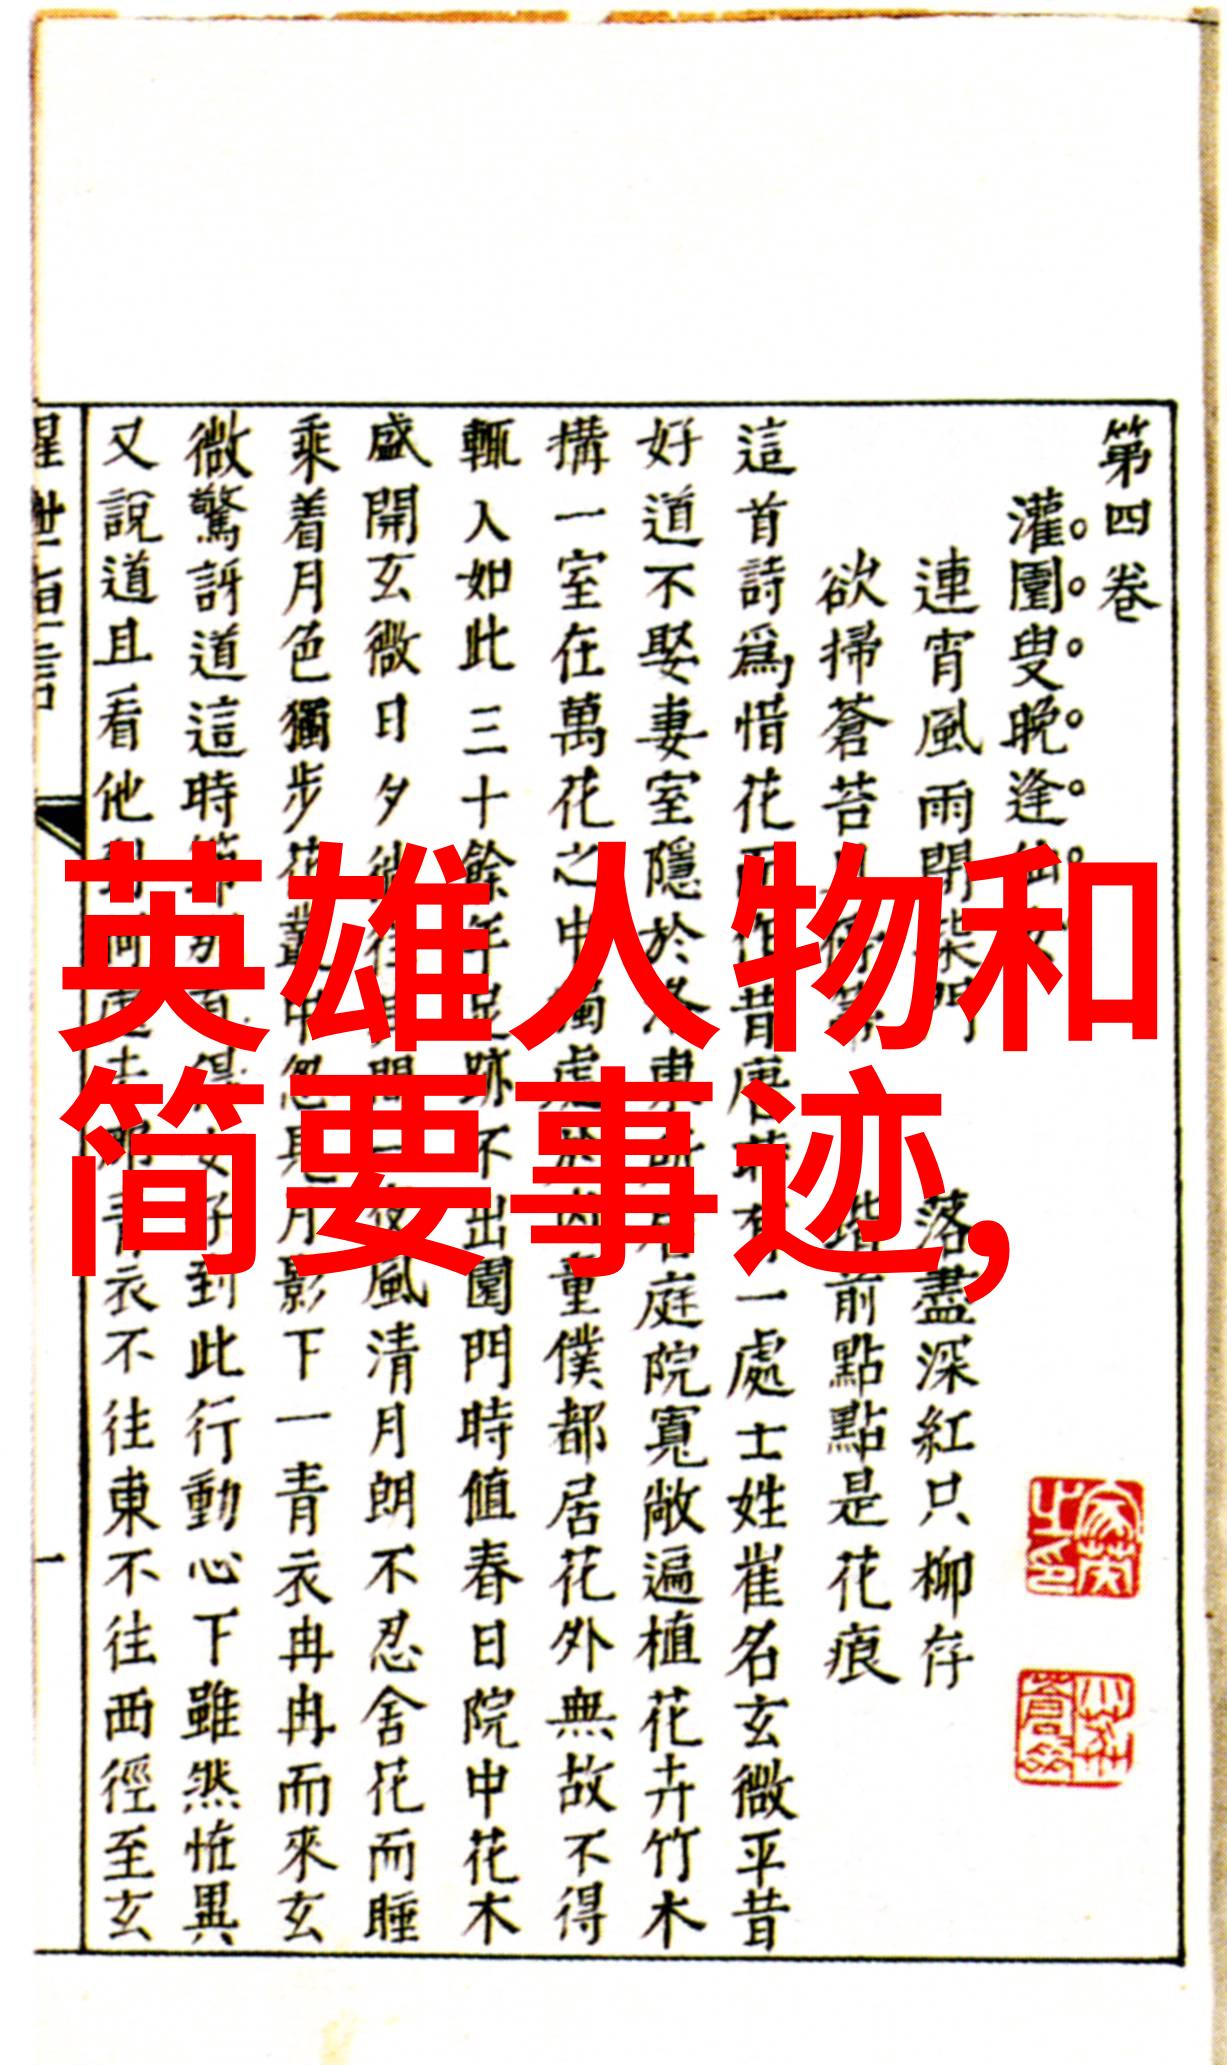 第四卷
灌園叟晚逢仙女
連宵風雨閉柴門 落盡深紅只柳存
欲掃蒼苔 階前點點是花痕
這首詩爲惜花而作昔唐時有一處士姓崔名玄微平昔
好道不娶妻室隱於洛東所居庭院寬敞遍植花卉竹木
搆一室在萬花之中獨處於内童僕都居花外無故不得
輒入如此三十餘年足跡不出園門時值春日院中花木
盛開玄微日夕徜徉其間一夜風清月朗不忍舍花而睡
乘着月色獨步花叢中忽見月影下一青衣冉冉而來玄
微驚訝道這時節得女子到此行動心下雖然怪異
又說道且看他到何處去那青衣不往東不往西徑至玄
一
英雄人物和
简要事迹,